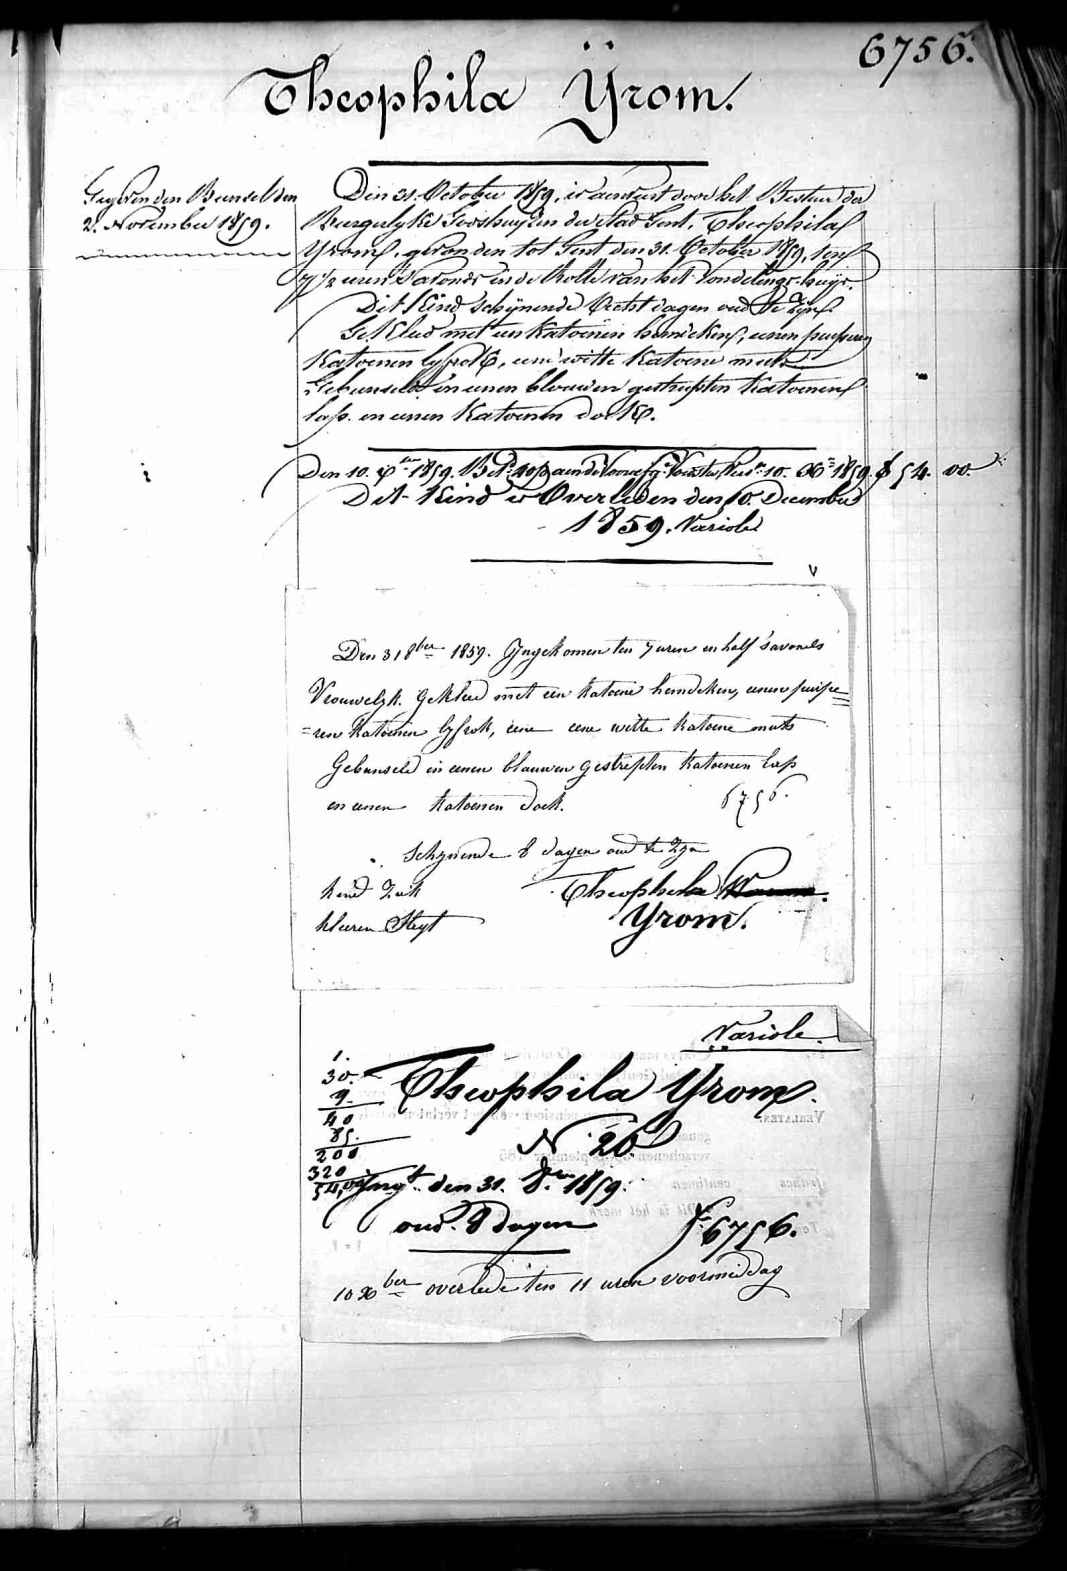 6756.
Theophila Ÿrom.
Gegeven den Bunsel den
2. November 1859.
Den 31. October 1859, is aenveirt door het Bestuer der
Burgelyke Godshuyzen der stad Gent, Theophila
Yrom, gevonden tot Gent den 31. October 1859, ten
7 1/2 uren 's avonds in de Rolle van het Vondelings-huys.
Dit Kind schynende Acht dagen oud te zyn.
Gekleed met een Katoenen hemdeken, eenen purperen
Katoenen lyfrok, eene witte Katoene muts
Gebunseld in eenen blauwen gestreepten Katoenen
lap en eenen Katoenen doek.
Den 10. Xber 1859. 10 Xbre 1859. f 54. 00.
Dit Kind is Overleden den 10. December
1859. Variole
Den 31 8ber 1859. Ingekomen ten 7 uren en half 's avonds
Vrouwelyk. Gekleed met een Katoene hemdeken, eenen purpe=
=ren Katoenen lyfrok, eene eene witte Katoene muts
Gebunseld in eenen blauwen gestreepten Katoenen lap
en eenen Katoenen doek.
6756.
Schynende 8 dagen oud te Zyn
Kind Ziek
Theophila
kleeren Slegt
Yrom.
Variole.
1.
30.
9.
40
85.
200
320
54,00
Theophila Yrom.
N 26
Ingt. den 31. 8bre 1859.
oud. 8 dagen
N 6756.
10 Xber overlede ten 11 uren voormiddag